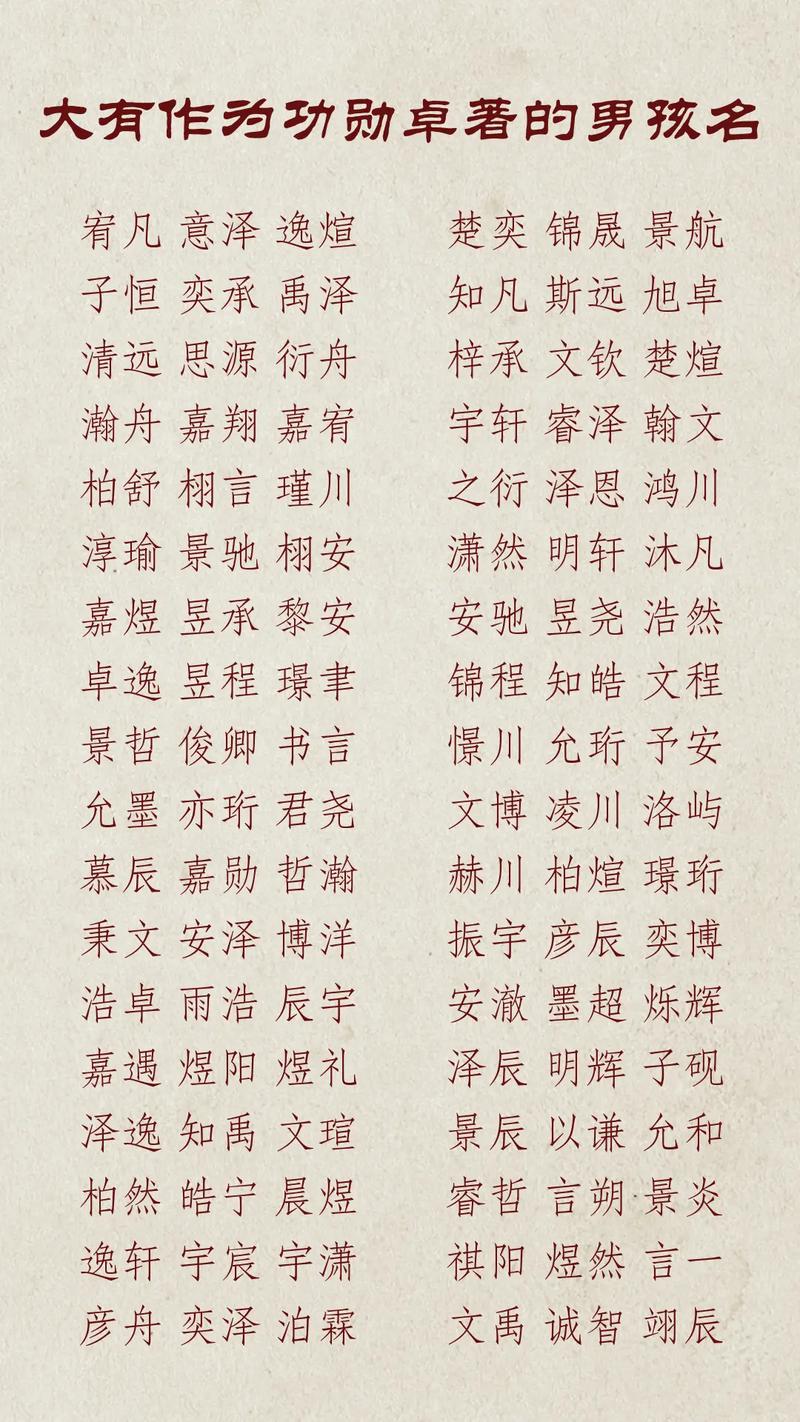 大有作为功勋卓著的男孩名
宥凡 意泽 逸煊 楚奕 锦晟 景航
子恒 奕承 禹泽 知凡 斯远 旭卓
清远 思源 衍舟 梓承 文钦 楚煊
瀚舟 嘉翔 嘉宥 宇轩 睿泽 翰文
柏舒 栩言 瑾川 之衍 泽恩 鸿川
淳瑜 景驰 栩安 潇然 明轩 沐凡
嘉煜 昱承 黎安 安驰 昱尧 浩然
卓逸 昱程 璟聿 锦程 知皓 文程
景哲 俊卿 书言 憬川 允珩 予安
允墨 亦珩 君尧 文博 凌川 洛屿
慕辰 嘉勋 哲瀚 赫川 柏煊 璟珩
秉文 安泽 博洋 振宇 彦辰 奕博
浩卓 雨浩 辰宇 安澈 墨超 烁辉
嘉遇 煜阳 煜礼 泽辰 明辉 子砚
泽逸 知禹 文瑄 景辰 以谦 允和
柏然 皓宁 晨煜 睿哲 言朔 景炎
逸轩 宇宸 宇潇 祺阳 煜然 言一
彦舟 奕泽 泊霖 文禹 诚智 翊辰